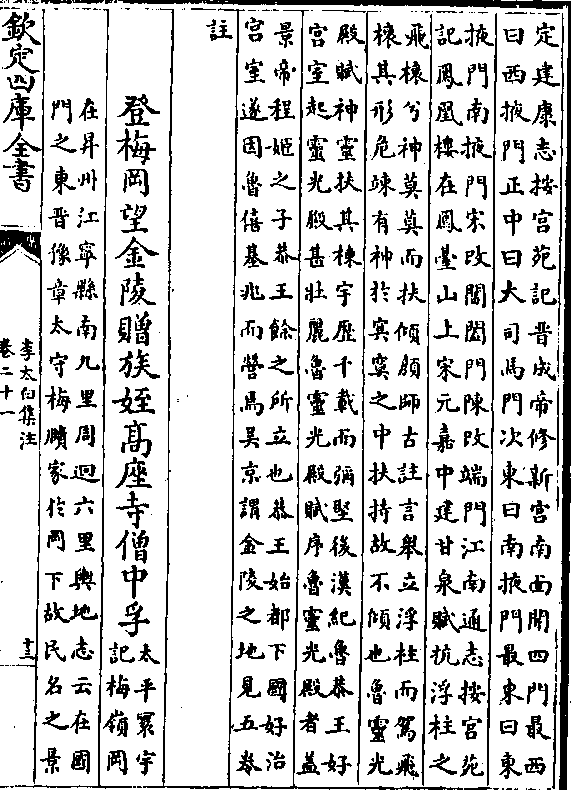 定建康志按宫苑記晉成帝修新宫南面開四門最西
曰西掖門正中曰大司馬門次東曰南掖門最東曰東
掖門南掖門宋改閶闔門陳改端門江南通志按宫苑
記鳳凰樓在鳳臺山上宋元嘉中建甘泉賦抗浮柱之
飛榱兮神莫莫而扶傾顔師古註言舉立浮柱而駕飛
榱其形危竦有神於㝠㝠之中扶持故不傾也魯靈光
殿賦神靈扶其棟宇歷千載而彌堅後漢紀魯恭王好
宫室起靈光殿甚壯麗魯靈光殿賦序魯靈光殿者蓋
景帝程姬之子恭王餘之所立也恭王始都下國好治
宫室遂因魯僖基兆而營焉吴京謂金陵之地見五巻
註
登梅岡望金陵贈族姪髙座寺僧中孚
太平寰宇
記梅嶺岡
在昇州江寧縣南九里周迴六里輿地志云在國
門之東晉豫章太守梅賾家於岡下故民名之景
欽定四庫全書
李太白集注
卷二十一
十三